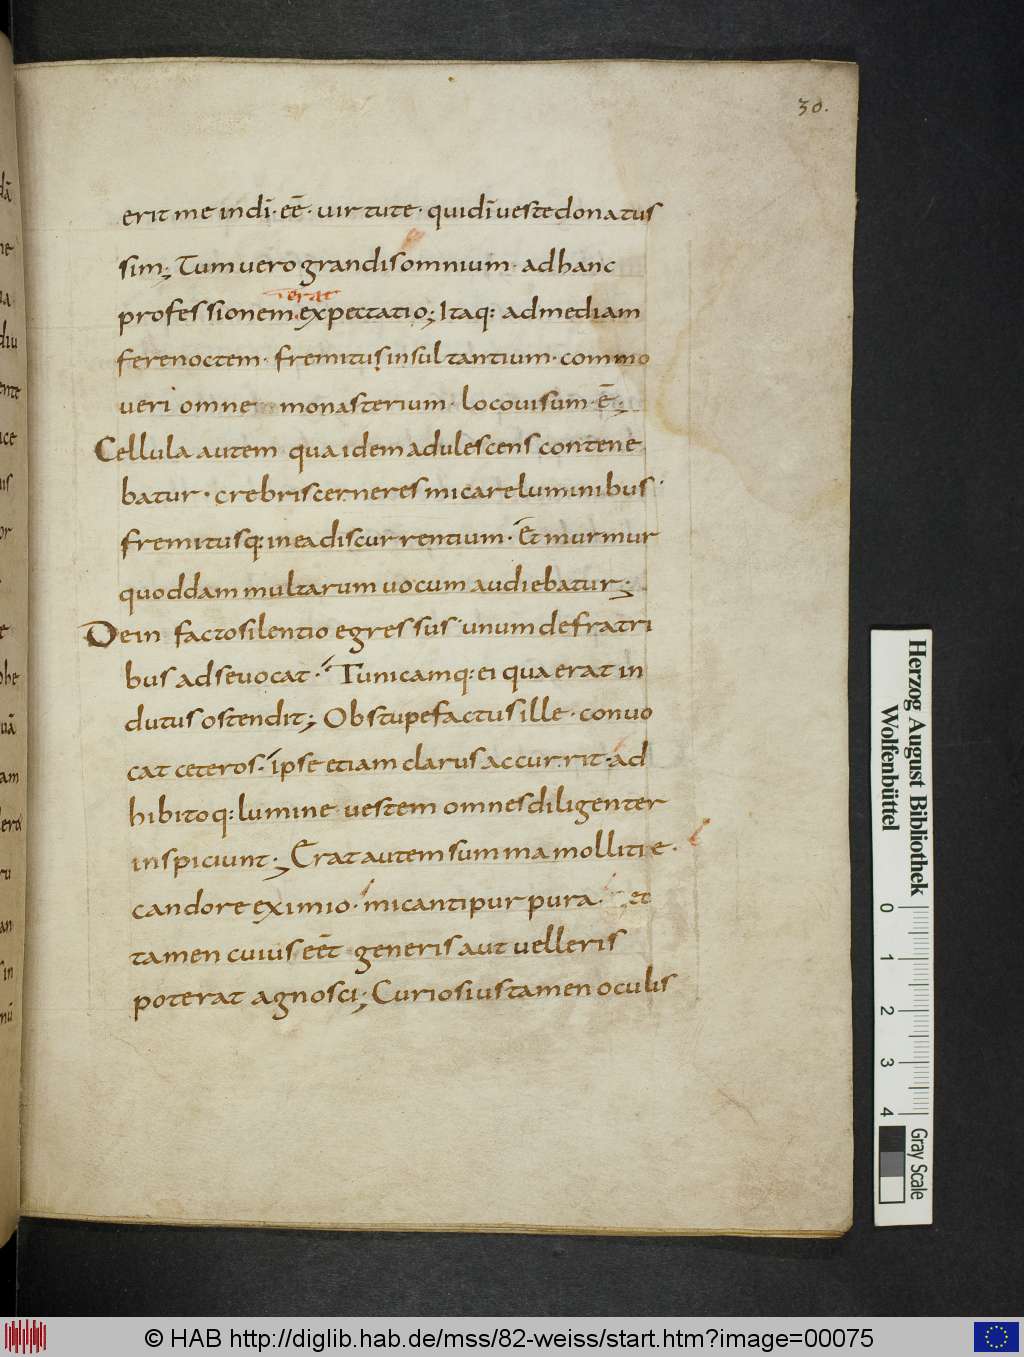 30.
erit me in dī· eē· uirtute· qui dī ueste donatus
sim; Tum uero grandis omnium· ad hanc
erat
professionem expectatio; Itaq: ad mediam
fere noctem· fremitus insultantium· commo
ueri omne monasterium· loco uisum· ē;
Cellula autem qua idem adulescens contene
batur· crebris cerneres micare luminibus·
fremitusq: in ea discurrentium· Et murmur
quoddam multarum uocum audiebatur;
Dein facto silentio egressus unum de fratri
bus ad se uocat· Tunicamq: ei qua erat in
dutus ostendit; Obstupefactus ille· conuo
cat ceteros· ipse etiam clarus accurrit· ad
hibitoq: lumine uestem omnes diligenter
inspiciunt; Erat autem summa mollitie·
candore eximio· micanti purpura· et
tamen cuius eēt generis aut uelleris
poterat agnosci; Curiosius tamen oculis
Herzog August Bibliothek
Wolfenbüttel
0 1 2 3 4
Gray Scale
© HAB http://diglib.hab.de/mss/82-weiss/start.htm?image=00075